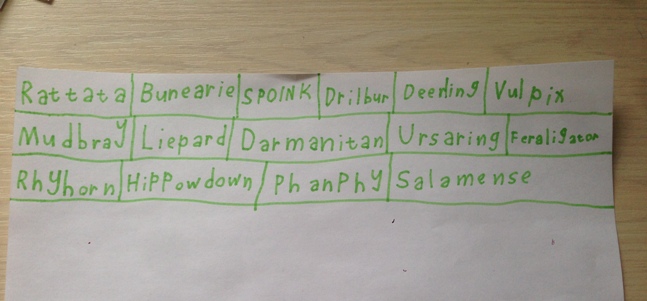 Rattata Bunearie SPOINK Drilbur Deerling Vulpix
Mudbray Liepard Darmanitan Ursaring Feraligator
Rhyhorn Hippowdown Phanphy Salamense